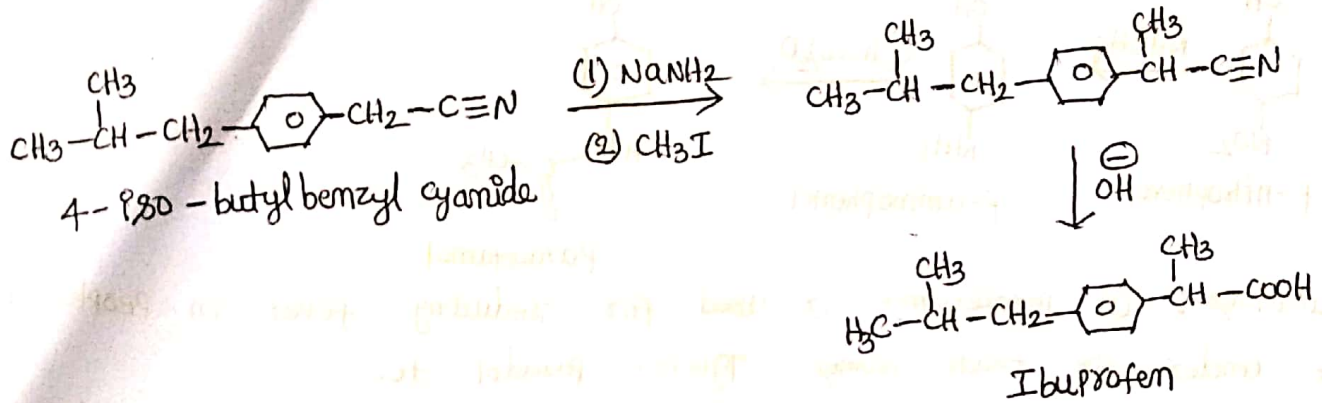 CH3
CH3-CH-CH2-⌬-CH2-C≡N
4-iso-butyl benzyl cyanide
(1) NaNH2
(2) CH3I
CH3 CH3
CH3-CH-CH2-⌬-CH-C≡N
⊖
OH
CH3 CH3
H3C-CH-CH2-⌬-CH-COOH
Ibuprofen